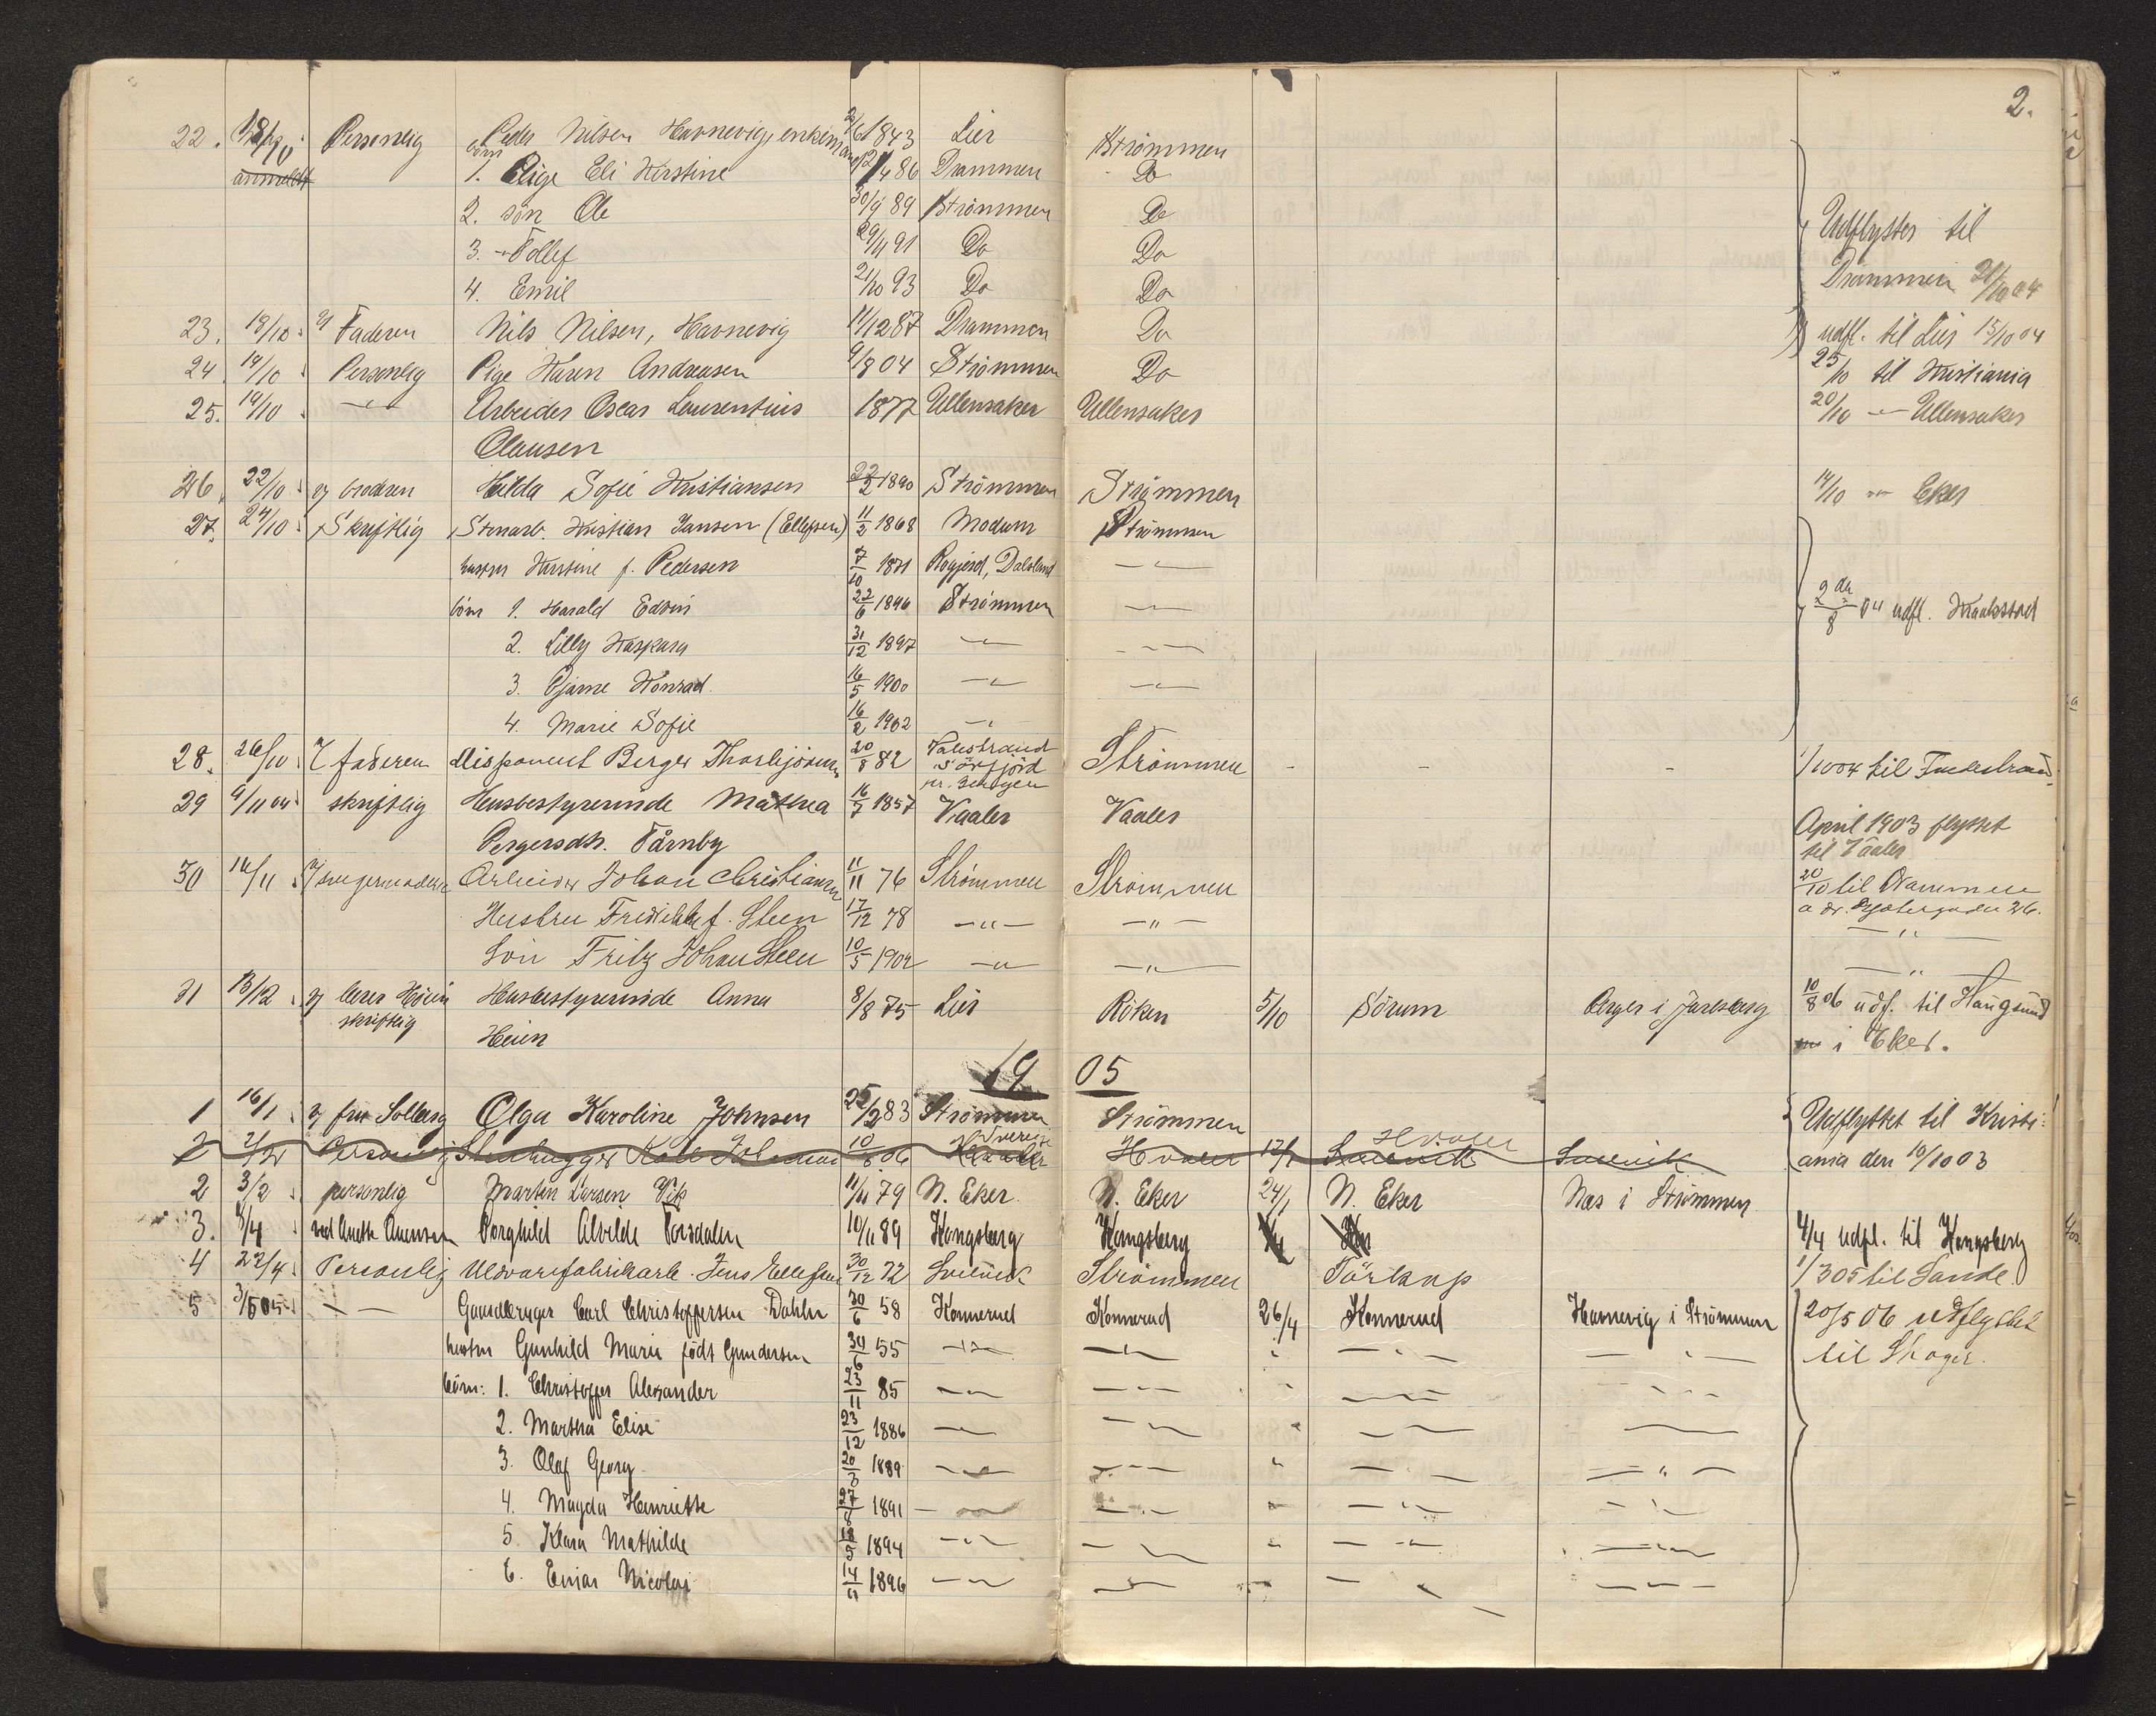 2.
22. 18/10 Personlig Peder Nilsen Havnevig, enkemand 1843 Lier Strømmen
anmeldt børn 1. Pige Eli Kirstine 86 Drammen Do
2. søn Ole 30/9 89 Strømmen Do Udflyttet til
3. - Tollef 29/11 91 Do Do
4. Emil 21/10 93 Do Do Drammen 21/10 04
23. 18/10 Faderen Nils Nilsen, Havnevig 11/12 87 Drammen Do udfl. til Lier 15/10 04
24. 19/10 Personlig Pige Karen Andreasen 9/8 04 Strømmen Do 25/10 til Kristiania
25. 19/10 -"- Arbeider Oscar Laurentius 1877 Ullensaker Ullensaker 20/10 -"- Ullensaker
Olausen
26. 22/10 v/ broderen Hilda Sofie Kristiansen 22/2 1890 Strømmen Strømmen 14/10 -"- Eker
27. 24/10 Skriftlig Stenarb. Kristian Jansen (Ellefsen) 11/2 1868 Modum Strømmen
hustru Kirstine f. Pedersen 7/10 1871 Dalsland -"-
børn 1. Harald Edvin 22/6 1896 Strømmen -"- 04 udfl.
2. Lilly Kaspara 31/12 1897 -"- -"-
3. Bjarne Konrad. 16/5 1900 -"- -"-
4. Marie Sofie 16/2 1902 -"-
28. 26/10 v/ faderen Disponent Berger Thorbjørnsen 20/8 82 Sørfjord Strømmen - - - 1/10 04 til
pr. Bergen
29 9/11 04 skriftlig Husbestyrerinde Mathea 16/7 1857 Vaaler Vaaler April 1903 flyttet
Bergersdtr. Tårnby til Våaler
30 14/11 v/ svigermoderen Arbeider Johan Christiansen 11/11 76 Strömmen Strömmen 20/10 til Drammen
Hustru Fredrikke f. Steen 17/12 78 -"- -"- adr. 26.
Søn Fritz Johan Steen 10/5 1902 -"- -"- -"-
31 13/12 v/ lærer Heien Husbestyrerinde Anna 8/8 75 Lier Röken 5/10 Sörum Berger i Jarlsberg 10/8 06 udf. til Haugsund
skriftlig Heien i Eker.
1905
1 16/1 v/ fru Solberg Olga Karoline Johnsen 25/2 83 Strømmen Strømmen Udflyttet til Kristi-
2 Personlig Stenhugger Hvaler 17/1 Svelvik Hvaler Svelvik ania den 16/10 03
2 3/2 personlig Martin Larsen Vik 11/11 79 N. Eker. N. Eker 24/1 N. Eker Næs i Strømmen
3. 4/4 ved Anette Anensen Borghild Alvilde Torsdalen 10/11 89 Kongsberg Kongsberg 4/4 udfl. til Kongsberg
4 22/4 Personlig Uldvarefabrikarb. Jens Ellefsen 30/12 72 Svelvik Strömmen Törkop 1/3 05 til Sande.
5 3/5 05 - - Gaardbruger Carl Christoffersen Dahler 30/6 58 Konnerud Konnerud 26/4 Konnerud Havnevig i Strömmen 20/5 06 udflyttet
hustru Gunhild Marie født Gundersen 30/6 55 -"- -"- " -"- -"- til Skoger.
børn: 1. Christoffer Alexander 23/11 85 -"- -"- " -"- -"-
2. Martha Elise 23/12 1886 -"- -"- " -"- -"-
3. Olaf Georg 20/3 1889 -"- -"- " -"- -"-
4. Magda Henriette 27/8 1891 -"- -"- " -"- -"-
5. Klara Mathilde 18/5 1894 -"- -"- " -"- -"-
6. Einar Nicolay 1896 -"- -"- -"- -"-